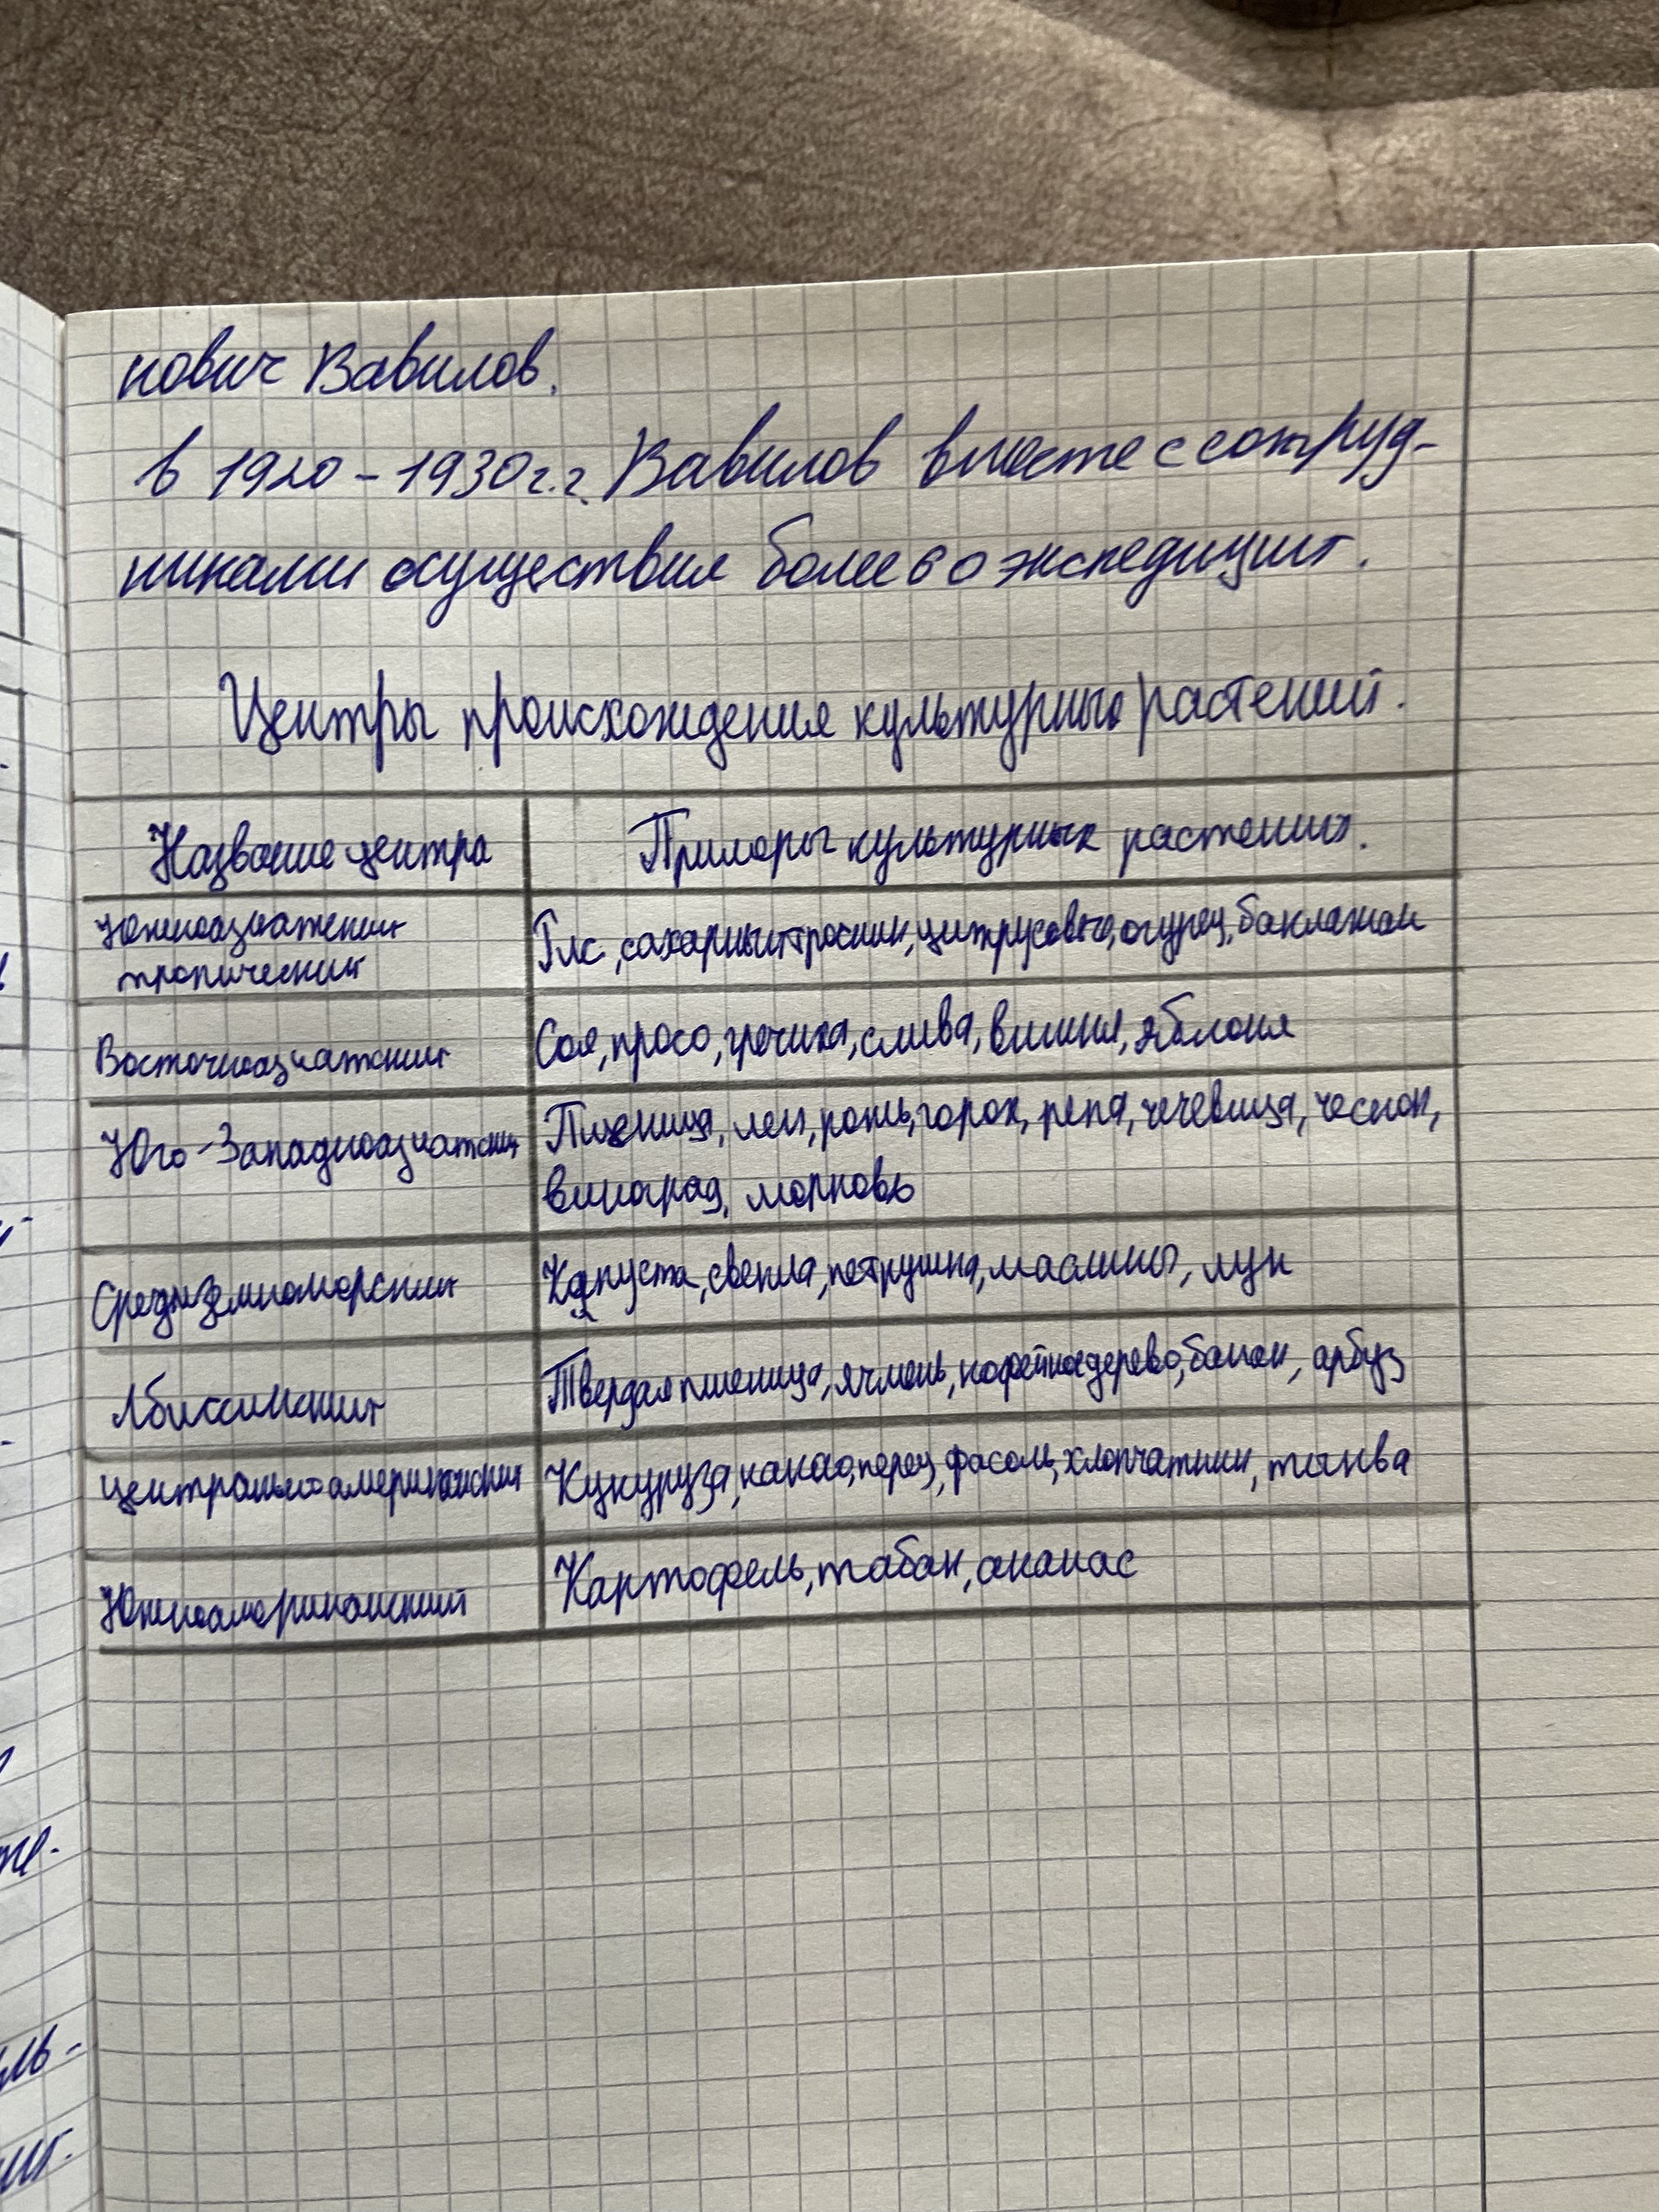 нович Вавилов.
в 1920-1930г.г. Вавилов вместе с сотруд-
никами осуществил более 60 экспедиций.
Центры происхождения культурных растений.
Название центра Примеры культурных растений.
Южноазиатский
тропический
Рис, сахарный тросник, цитрусовые, огурец, баклажан
Восточноазиатский Соя, просо, гречиха, слива, вишня, яблоня
Юго-Западноазиатский Пшеница, лен, рожь, горох, репа, чечевица, чеснок,
виноград, морковь
Средиземноморский Капуста, свекла, петрушка, маслины, лук
Абиссинский Твердая пшеница, ячмень, кофейное дерево, банан, арбуз
Центральноамериканский Кукуруза, какао, перец, фасоль, хлопчатник, тыква
Южноамериканский Картофель, табак, ананас